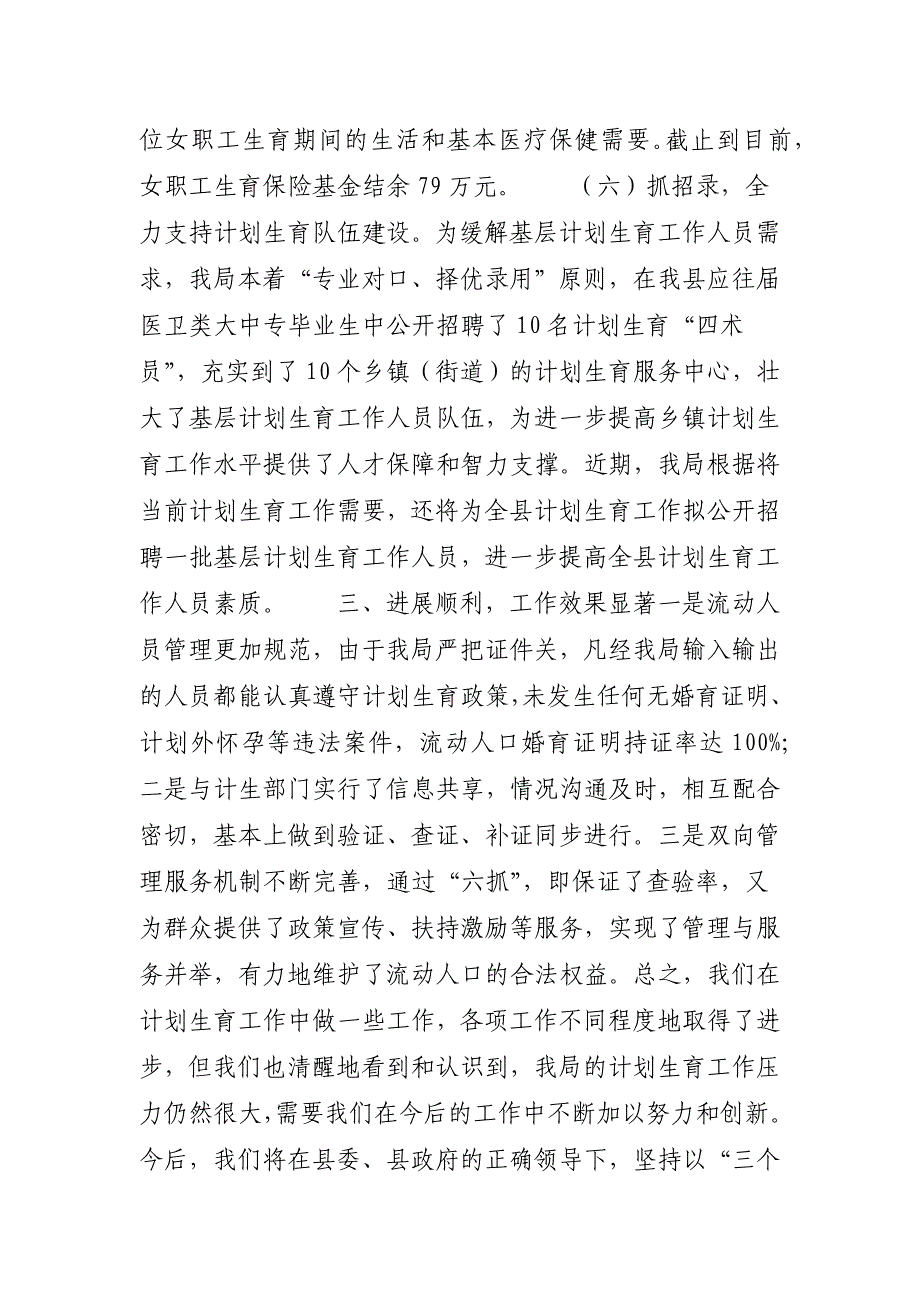 位女职工生育期间的生活和基本医疗保健需要。截止到目前，
女职工生育保险基金结余 79 万元。　　（六）抓招录，全
力支持计划生育队伍建设。为缓解基层计划生育工作人员需
求，我局本着“专业对口、择优录用”原则，在我县应往届
医卫类大中专毕业生中公开招聘了 10 名计划生育“四术
员”，充实到了 10 个乡镇（街道）的计划生育服务中心，壮
大了基层计划生育工作人员队伍，为进一步提高乡镇计划生
育工作水平提供了人才保障和智力支撑。近期，我局根据将
当前计划生育工作需要，还将为全县计划生育工作拟公开招
聘一批基层计划生育工作人员，进一步提高全县计划生育工
作人员素质。　　三、进展顺利，工作效果显著一是流动人
员管理更加规范，由于我局严把证件关，凡经我局输入输出
的人员都能认真遵守计划生育政策，未发生任何无婚育证明、
计划外怀孕等违法案件，流动人口婚育证明持证率达 100%;
二是与计生部门实行了信息共享，情况沟通及时，相互配合
密切，基本上做到验证、查证、补证同步进行。三是双向管
理服务机制不断完善，通过“六抓”，即保证了查验率，又
为群众提供了政策宣传、扶持激励等服务，实现了管理与服
务并举，有力地维护了流动人口的合法权益。总之，我们在
计划生育工作中做一些工作，各项工作不同程度地取得了进
步，但我们也清醒地看到和认识到，我局的计划生育工作压
力仍然很大，需要我们在今后的工作中不断加以努力和创新。
今后，我们将在县委、县政府的正确领导下，坚持以“三个